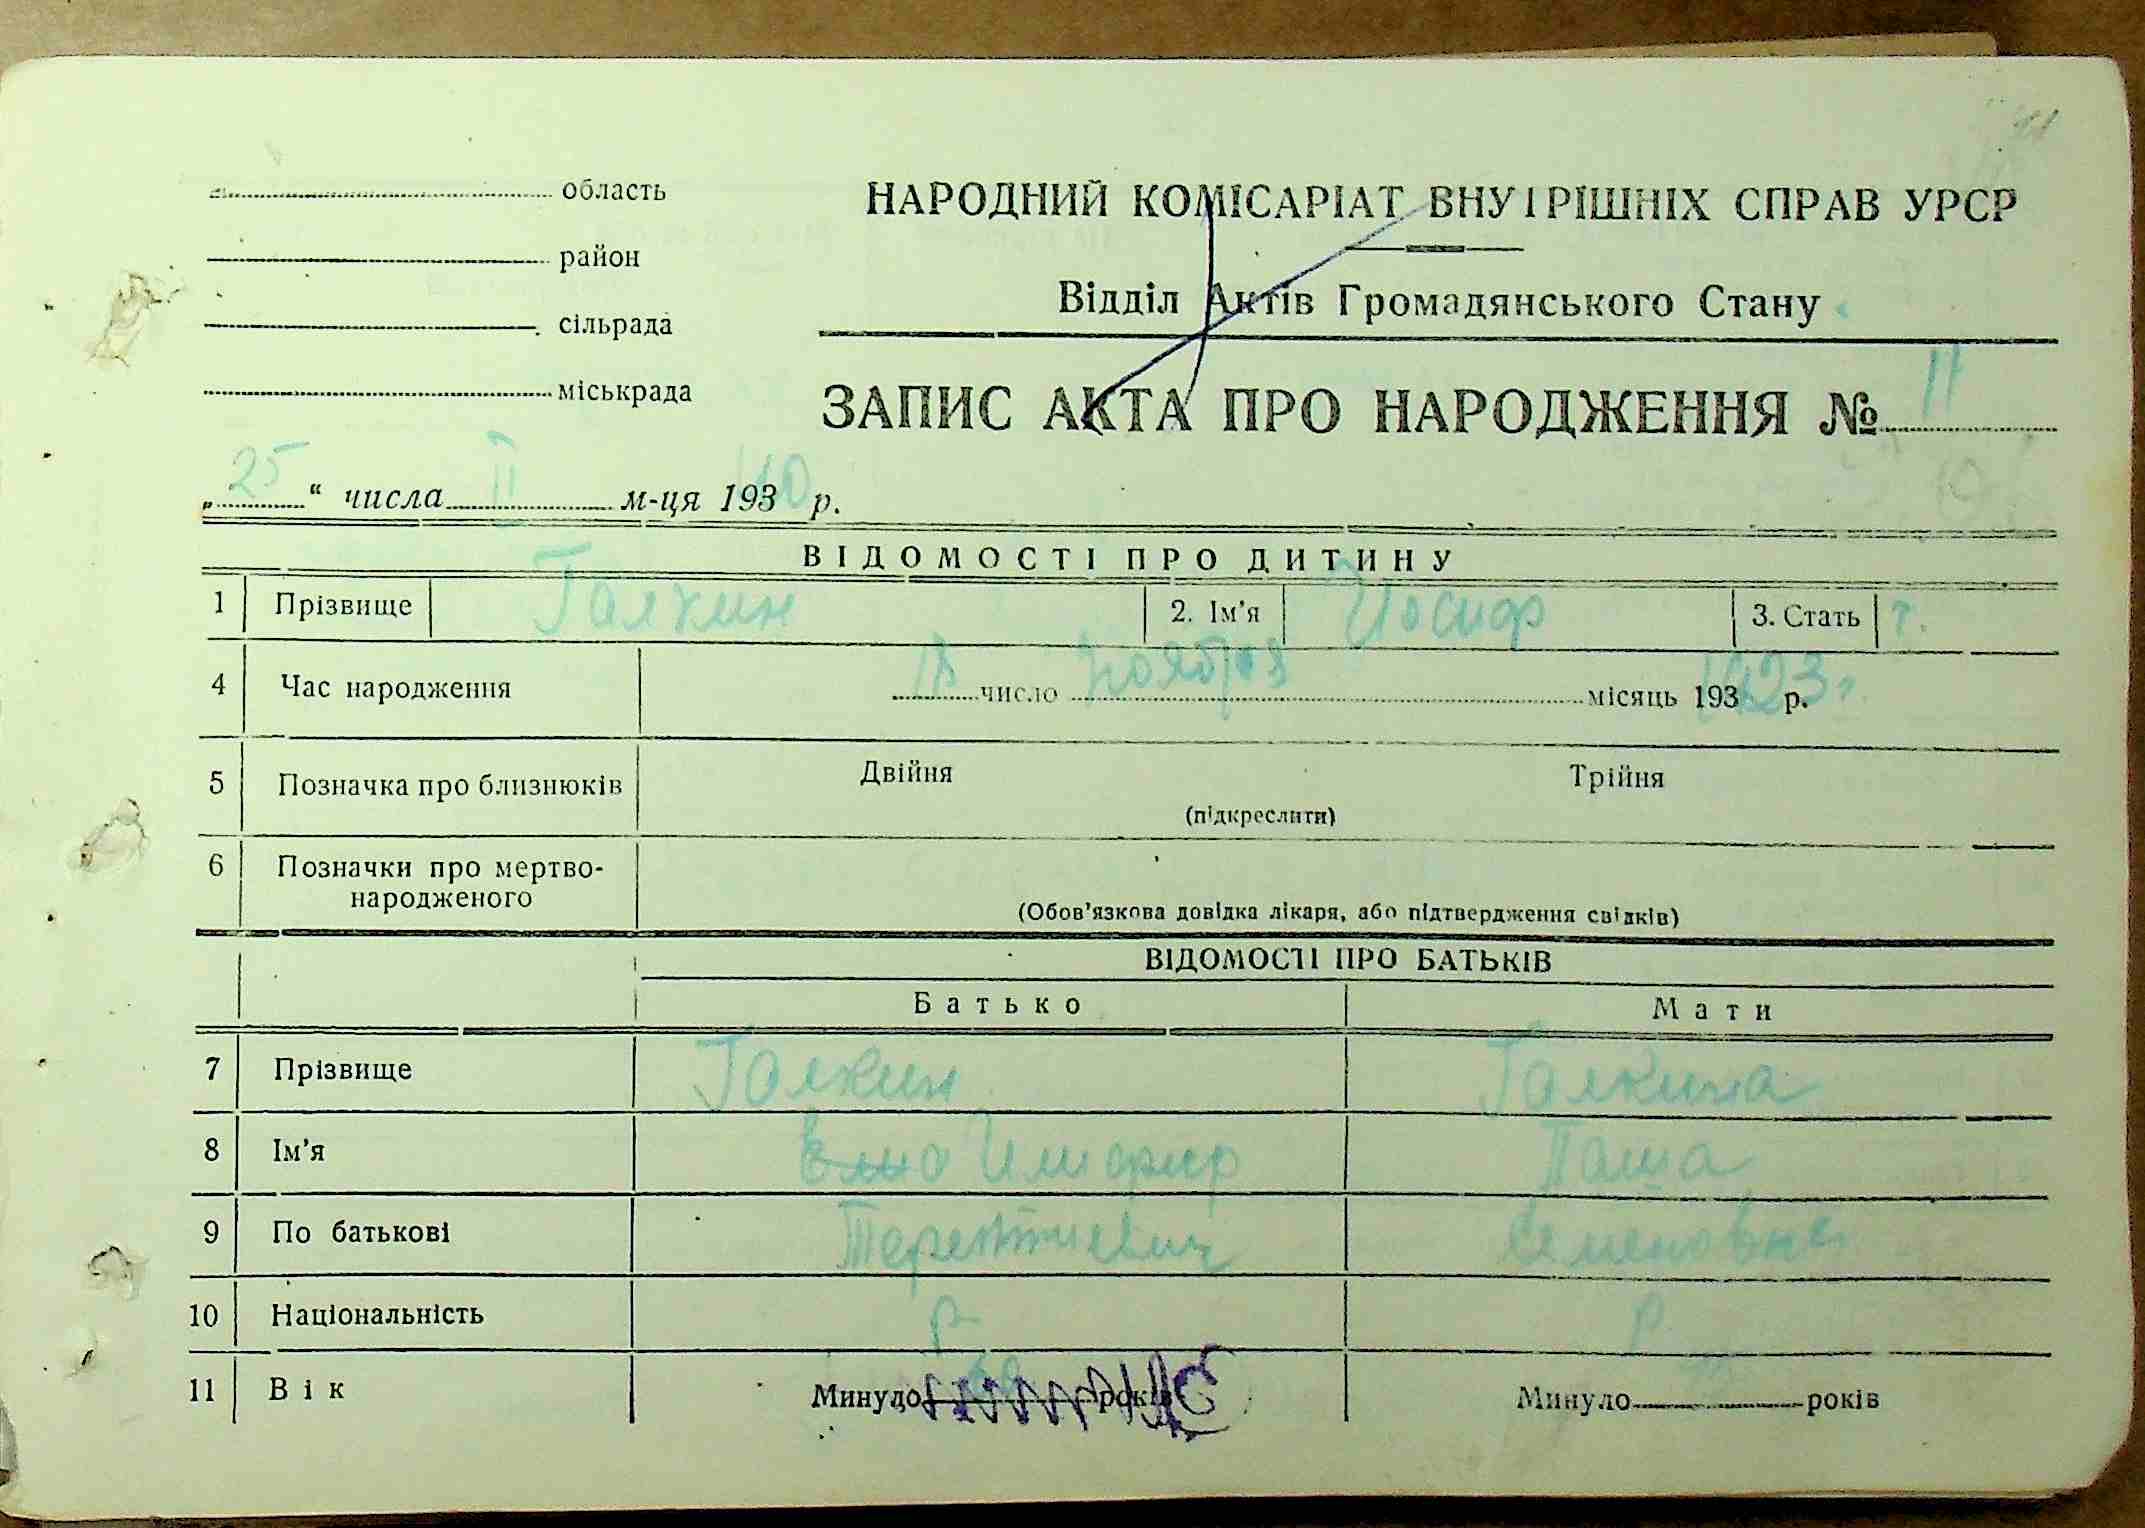 область
НАРОДНИЙ КОМІСАРІАТ ВНУТРІШНІХ СПРАВ УРСР
район
Відділ Актів Громадянського Стану
сільрада
міськрада
ЗАПИС АКТА ПРО НАРОДЖЕННЯ № 11
„25“ числа II м-ця 193 40 р.
ВІДОМОСТІ ПРО ДИТИНУ
1 Прізвище Галкин 2. Ім'я Иосиф 3. Стать
4 Час народження 18 число ноября місяць 193 1923 р.
5 Позначка про близнюків Двійня Трійня
(підкреслити)
6 Позначки про мертво-
народженого
(Обов'язкова довідка лікаря, або підтвердження свідків)
ВІДОМОСТІ ПРО БАТЬКІВ
Батько Мати
7 Прізвище Галкин Галкина
8 Ім'я Паша
9 По батькові Терентиевич Семеновна
10 Національність р р
11 Вік Минуло років Минуло років